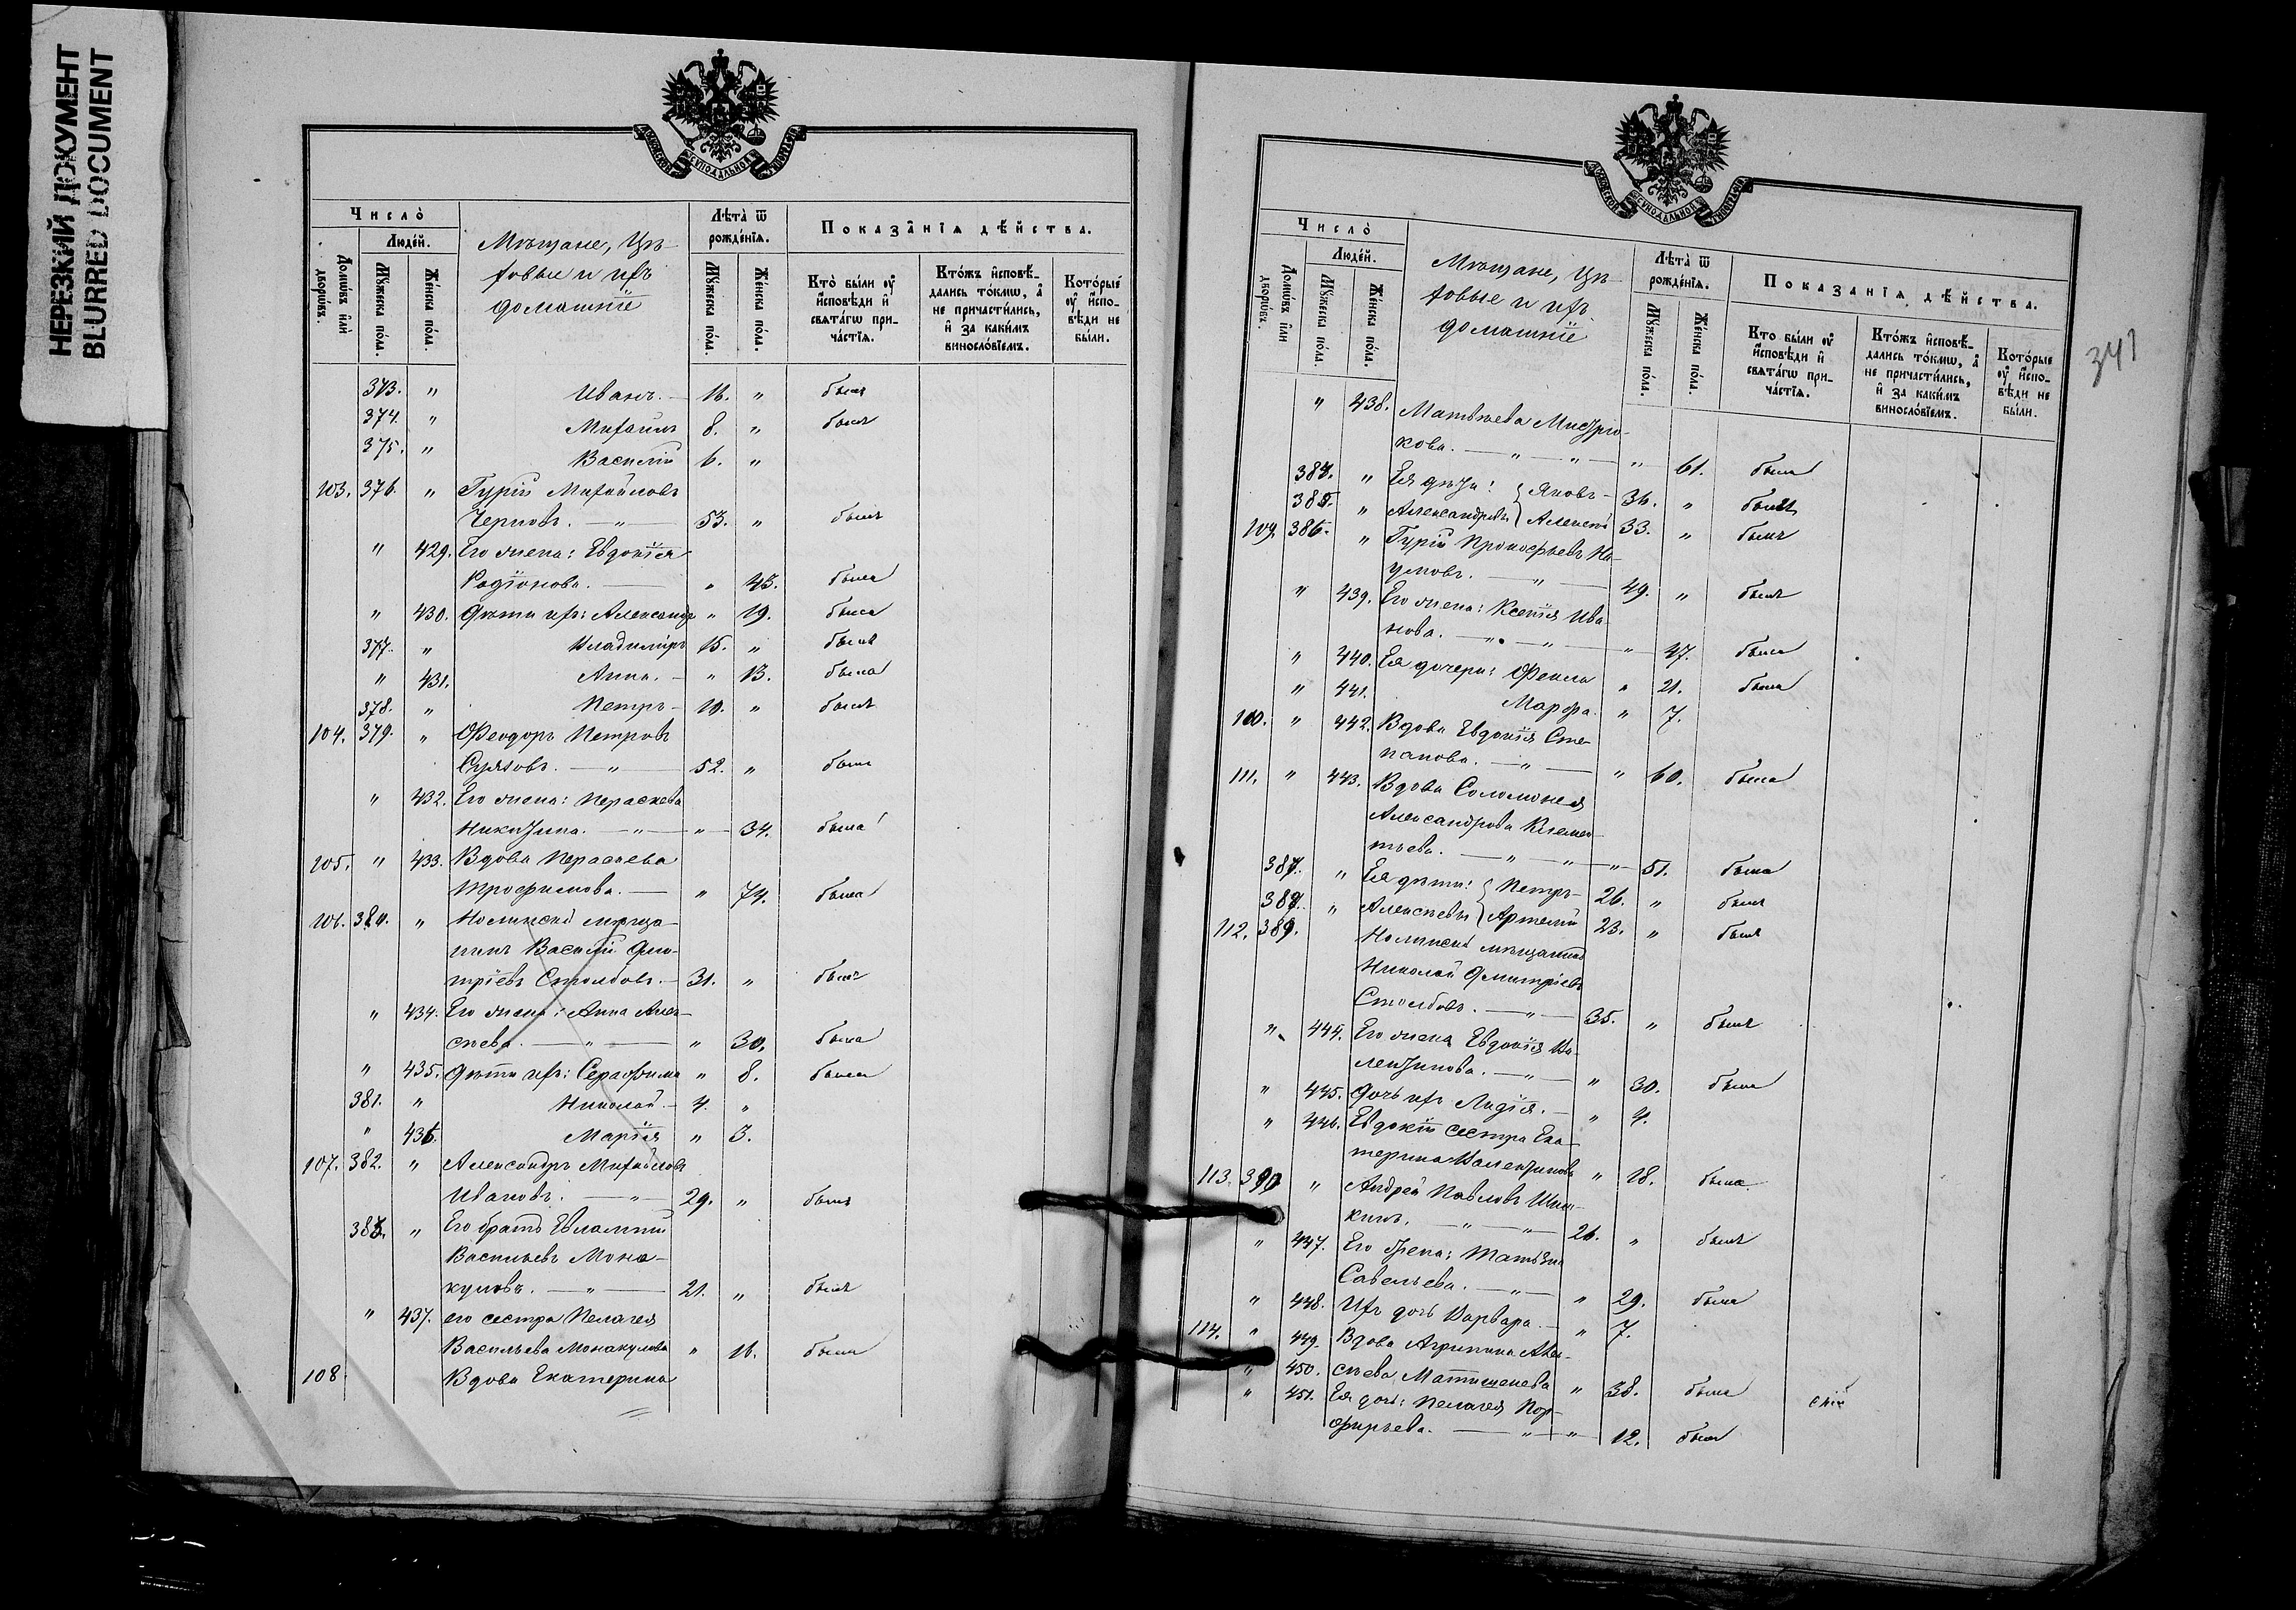 НЕРЕЗКИЙ ДОКУМЕНТ
BLURRED DOCUMENT
МОСКОВСКОЙ СѴНОДАЛЬНОЙ ТИПОГРАФІИ
Число̀
Люде́й.
Домѡ́въ и҆лѝ дворѡ́въ.
Мꙋ́жеска по́ла.
Же́нска по́ла.
Мѣщане, Цѣ-
ховые и ихъ
домашніе
Лѣ́та ѿ рожде́нїѧ.
Мꙋ́жеска по́ла.
Же́нска по́ла.
Показа̂нїѧ дѣ́йства.
Кто̀ бы́ли оу҆ и҆́сповѣди и҆ свѧта́гѡ прича́стїѧ.
Кто́жъ и҆сповѣ́дались то́кмѡ, а҆ не причасти́лись, и҆ за каки́мъ винosло́вїемъ.
Кото́рые оу҆ и҆́сповѣди не бы́ли.
373. " Иванъ. — 16. " былъ
374. " Михаилъ 8. " былъ
375. " Василій 6. "
103. 376. " Гурій Михайловъ
Черновъ. — " — 53. " былъ
" 429. Его жена: Евдокія
Родіонова. — " 43. была
" 430. Дѣти ихъ: Александра " 19. была
377. " Владиміръ 15. " былъ
" 431. Анна. — " 13. была
378. " Петръ — 10. " былъ
104. 379. " Ѳеодоръ Петровъ
— " — 52. " былъ
" 432. Его жена: Параскева
Никитина. — " — " 34. была
105. " 433. Вдова Параскева
Трофимова. — " 74. была
106. 380. " Нолинскій мѣща-
нинъ Василій Дми-
тріевъ Столбовъ. — 31. " былъ
" 434. Его жена: Анна Алек-
сѣева. — " — " 30. была
" 435. Дѣти ихъ: Серафима " 8. была
381. " Николай. — 4. "
" 436. Марія " 3.
107. 382. " Александръ Михайловъ
Ивановъ. — " — 29. " былъ
383. " Его братъ Евлампій
Васильевъ Мона-
куловъ. — " — 21. " былъ
" 437. его сестра Пелагея
Васильева Монакулова " 16. была
108 Вдова Екатерина
МОСКОВСКОЙ СѴНОДАЛЬНОЙ ТИПОГРАФІИ
341
Число̀
Люде́й.
Домѡ́въ и҆лѝ дворѡ́въ.
Мꙋ́жеска по́ла.
Же́нска по́ла.
Мѣщане, Цѣ-
ховые и ихъ
домашніе
Лѣ́та ѿ рожде́нїѧ.
Мꙋ́жеска по́ла.
Же́нска по́ла.
Показа̂нїѧ дѣ́йства.
Кто̀ бы́ли оу҆ и҆́сповѣди и҆ свѧта́гѡ прича́стїѧ.
Кто́жъ и҆сповѣ́дались то́кмѡ, а҆ не причасти́лись, и҆ за каки́мъ виносло́вїемъ.
Кото́рые оу҆ и҆́сповѣди не бы́ли.
" 438. Матвѣева
кова. — " — " — " 61. была
384. " Ея дѣти: Яковъ — 36. " былъ
385. " Александровы Алексѣй 33. " былъ
109. 386. " Гурій Прокофьевъ На-
умовъ. — " — 49. " былъ
" 439. Его жена: Ксенія Ива-
нова. — " — " — " 47. была
" 440. Ея дочери: Ѳекла " 21. была
" 441. Марфа. " 7.
110. " 442. Вдова Евдокія Сте-
панова. — " — " 60. была
111. " 443. Вдова Соломонея
Александрова Клемен-
тьева. — " — " — " 51. была
387. " Ея дѣти: Петръ — 26. " былъ
388. " Алексѣевы Артемій 23. " былъ
112. 389. Нолинскій мѣщанинъ
Николай Дмитріевъ
Столбовъ. — " — 35. " былъ
" 444. Его жена Евдокія Ва-
лентинова. — " — " 30. была
" 445. Дочь ихъ Лидія. — " 4.
" 446. Евдокіи сестра Ека-
терина Валентинова " 18. была
113. 390 " Андрей Павловъ
кинъ. — " — " 26. " былъ
" 447. Его жена: Татьяна
Савельева. — " — " 29. была
" 448. Ихъ дочь Варвара. — " 7.
114. " 449. Вдова Агрипина Алек-
" 450. сѣева " 38. была
" 451. Ея дочь: Пелагея Пор-
фирьева. — " — " 12. была